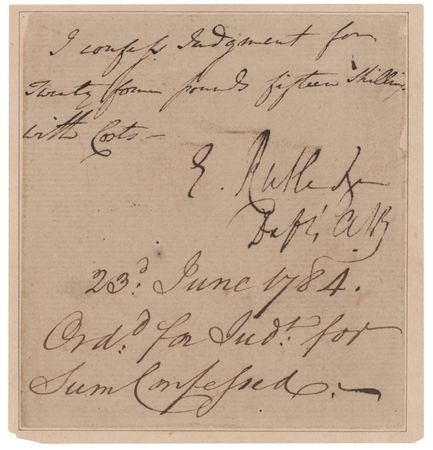 I confess Judgment for
Twenty four pounds fifteen Shillings
with Costs —
E. Rutledge
Defts Atty
23d. June 1784.
Ord.d for Jud.t for
Sum Confessed. —